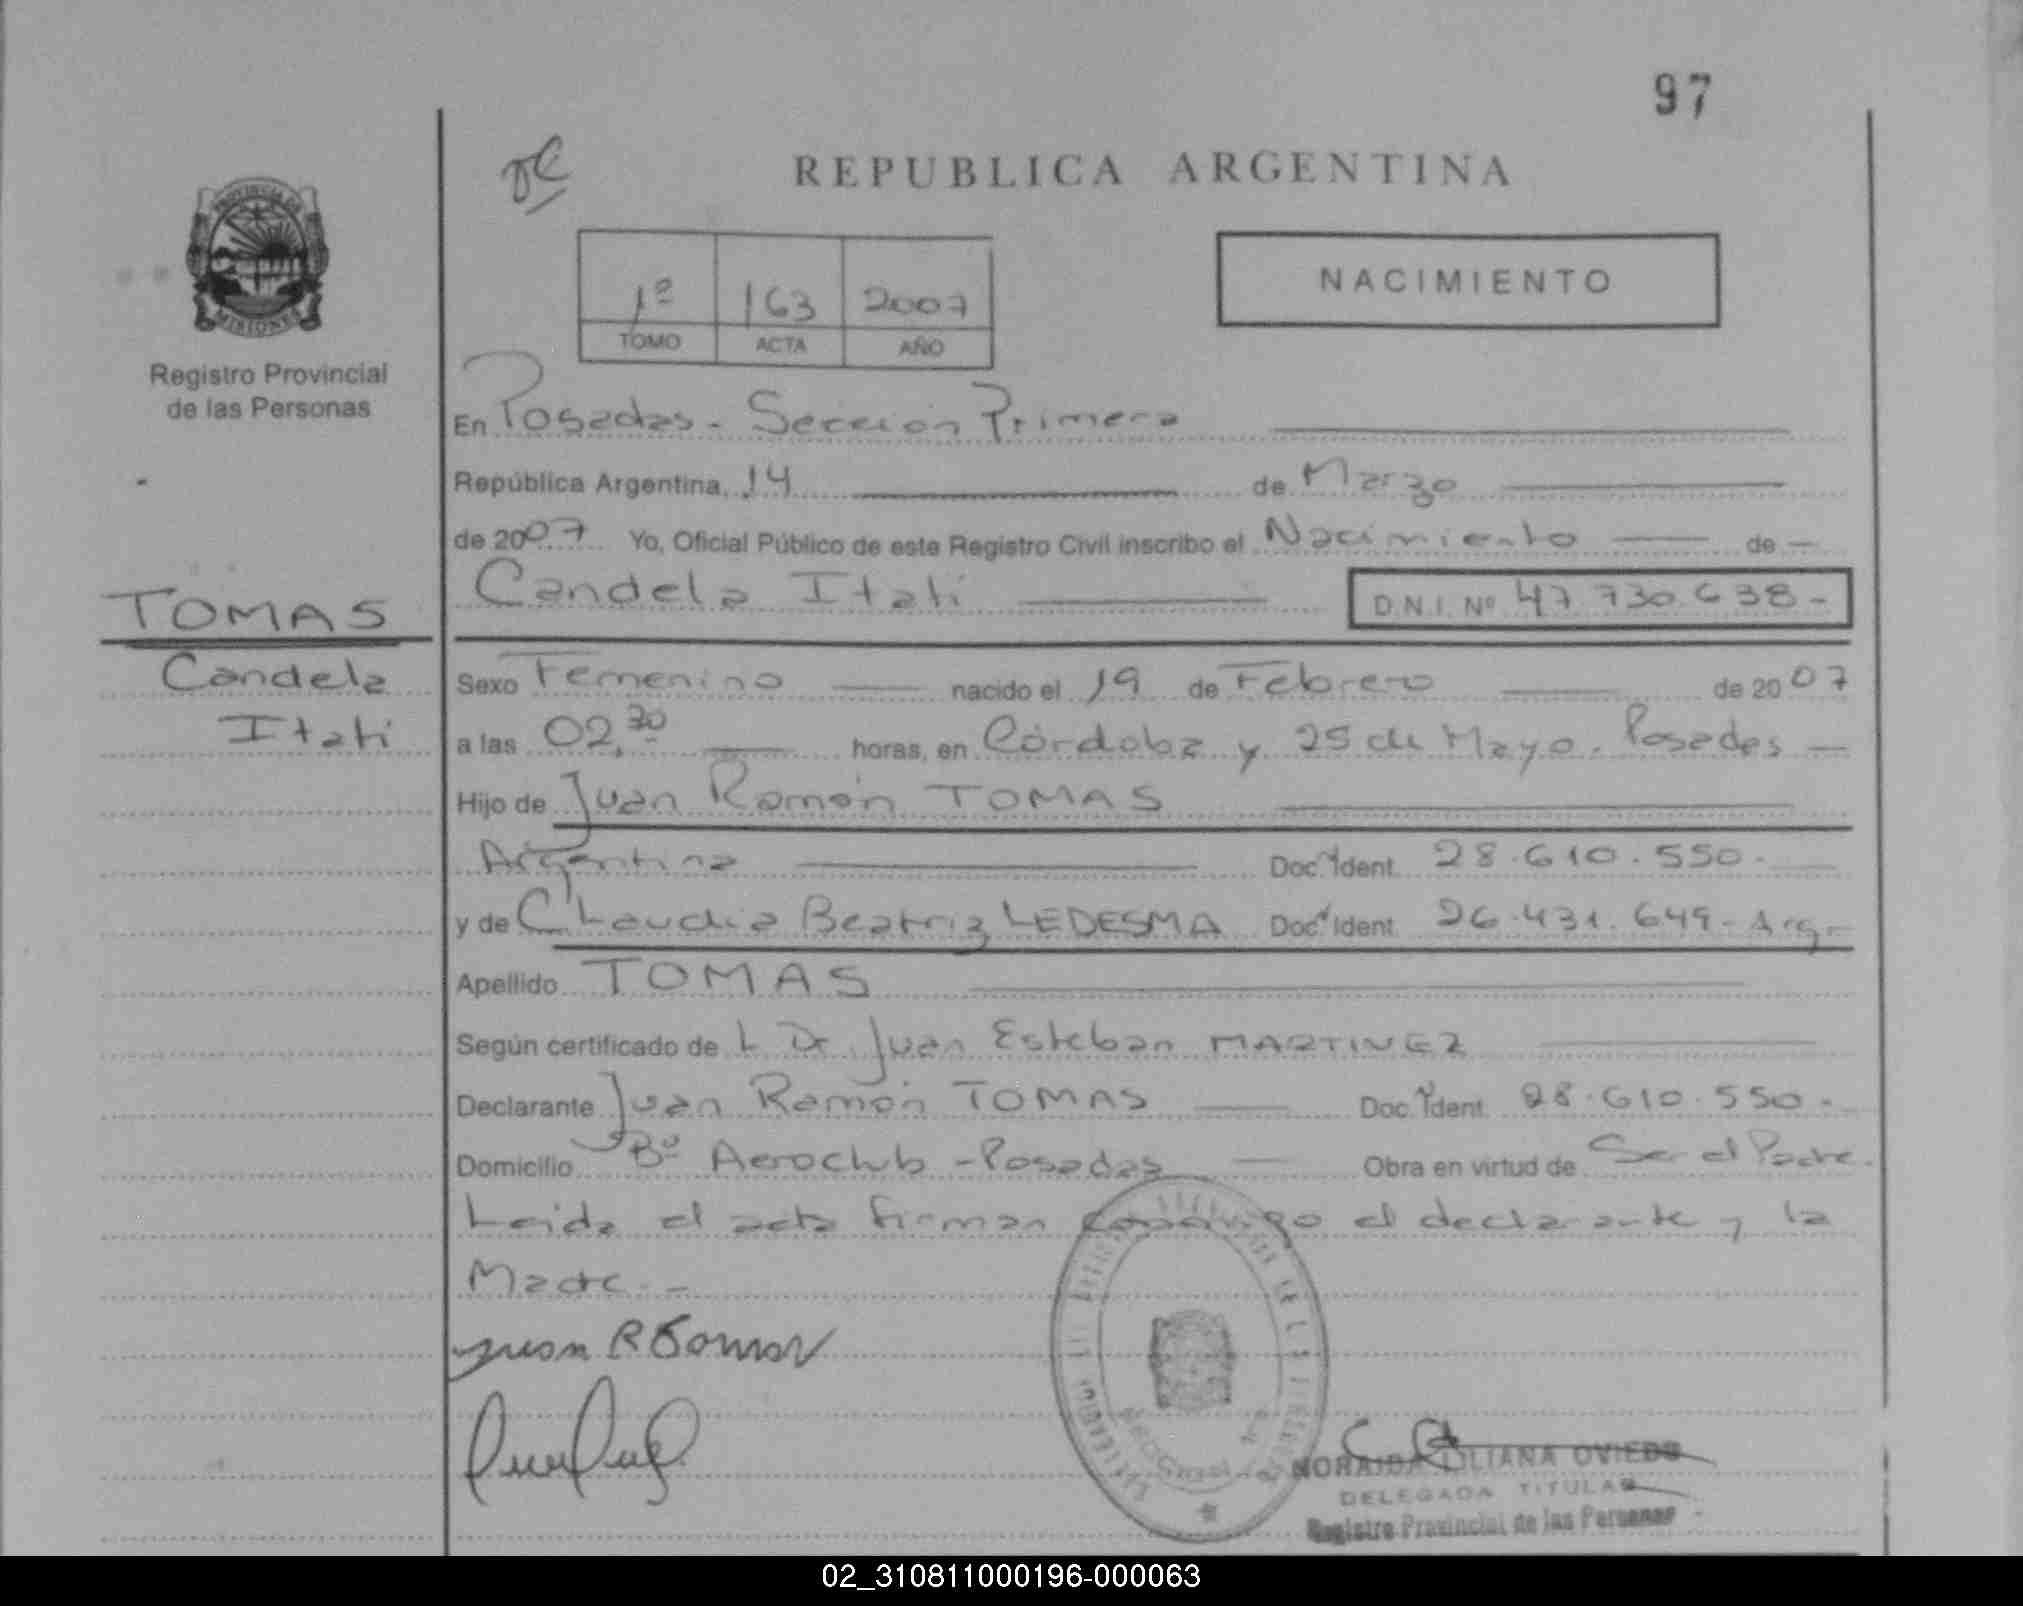 97
REPUBLICA ARGENTINA
PROVINCIA DE
MISIONES
Registro Provincial
de las Personas
1º 163 2007
TOMO ACTA AÑO
NACIMIENTO
En Posadas - Sección Primera
República Argentina, 14 de Marzo
de 2007 Yo, Oficial Público de este Registro Civil inscribo el Nacimiento de
TOMAS
Candela Itatí D.N.I. Nº 47.730.638-
Candela
Itatí
Sexo Femenino nacido el 19 de Febrero de 2007
a las 02,30 horas, en Córdoba y 25 de Mayo. Posadas
Hijo de Juan Ramón TOMAS
Argentina Doc. Ident. 28.610.550.
y de Claudia Beatriz LEDESMA Doc. Ident. 26.431.649- Arg.-
Apellido TOMAS
Según certificado de L Dr. Juan Esteban MARTINEZ
Declarante Juan Ramón TOMAS Doc. Ident. 28.610.550.
Domicilio Bº Aeroclub - Posadas Obra en virtud de Ser el Padre.
Leida el acta firman conmigo el declarante y la
Madre.-
Juan R Tomas
NORAIDA LILIANA OVIEDO
DELEGADA TITULAR
Registro Provincial de las Personas
02_310811000196-000063